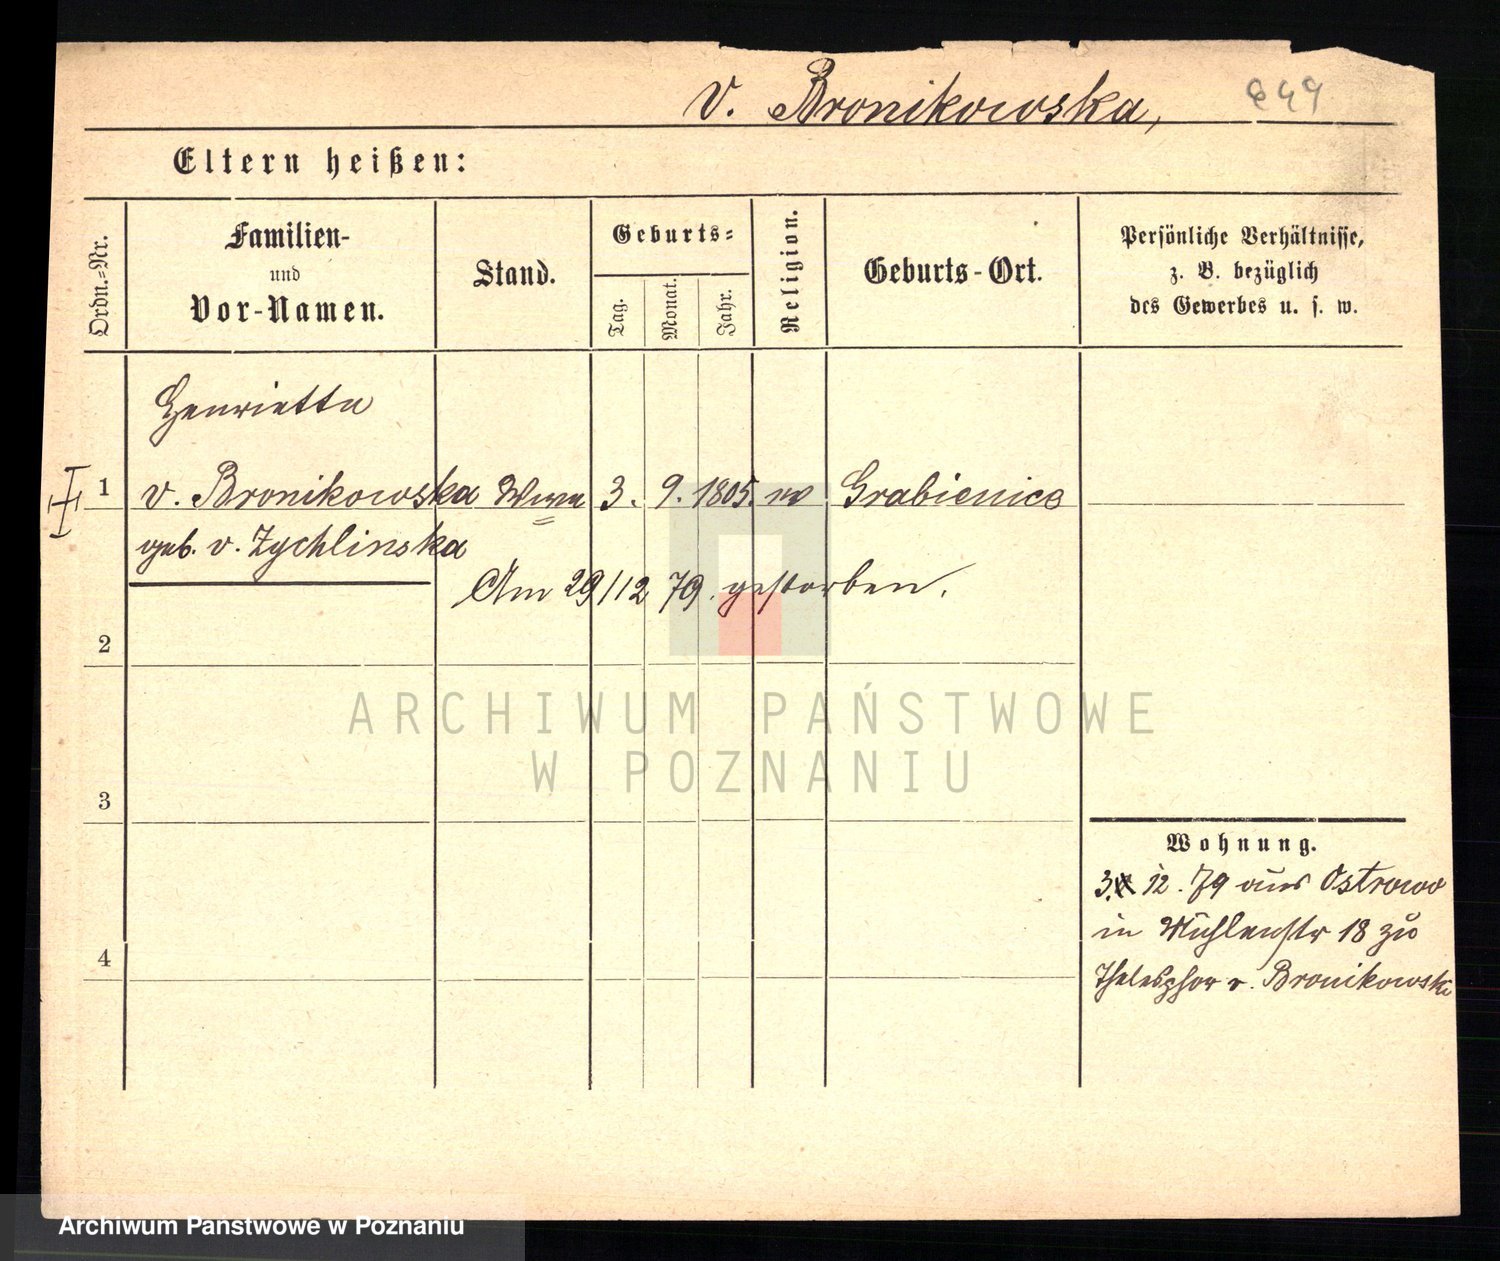 v. Bronikowska,
Eltern heißen:
Ordn.=Nr.
Familien-
und
Vor-Namen.
Stand.
Geburts=
Tag.
Monat.
Jahr.
Religion.
Geburts-Ort.
Persönliche Verhältnisse,
z. B. bezüglich
des Gewerbes u. s. w.
Henrietta
1 v. Bronikowska Wwe 3. 9. 1805. Grabienice
geb. v. Zychlinska
Am 29/12 79. gestorben.
2
3
4
Wohnung.
3. 12. 79 aus Ostrowo
in Mühlenstr 18 zu
Thelesphor v. Bronikowski
ARCHIWUM PAŃSTWOWE
W POZNANIU
Archiwum Państwowe w Poznaniu